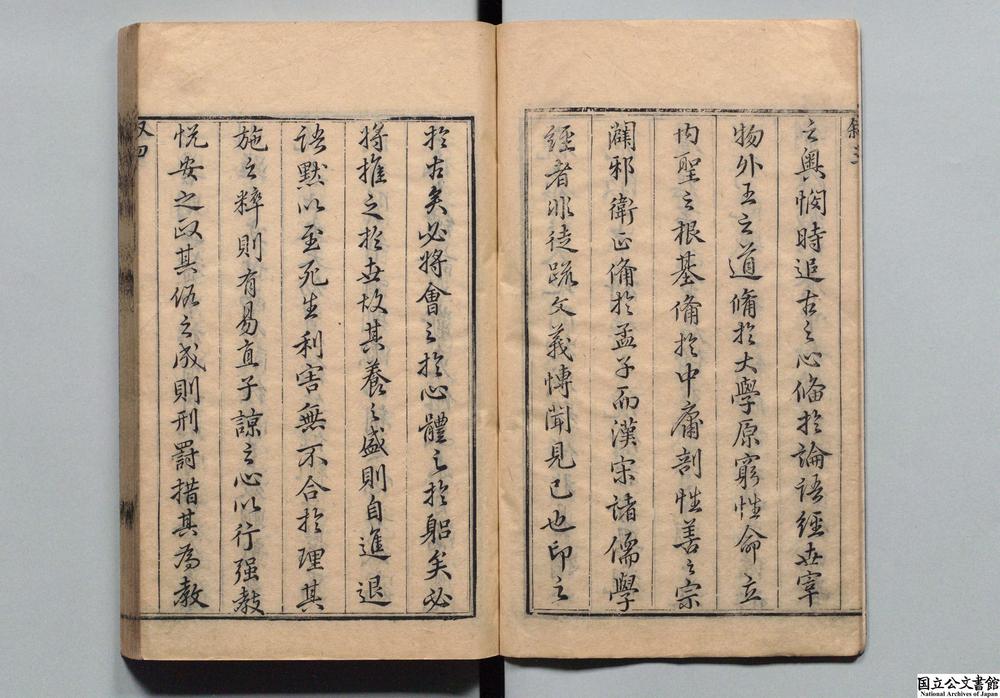 敘三
之奧憫時追古之心備於論語經世宰
物外王之道備於大學原窮性命立
內聖之根基備於中庸剖性善之宗
闢邪衛正備於孟子而漢宋諸儒學
經者非徒疏文義博聞見已也印之
於古矣必將會之於心體之於躬矣必
將推之於世故其養之盛則自進退
語默以至死生利害無不合於理其
施之粹則有易直子諒之心以行强教
悅安之政其俗之成則刑罰措其為教
敘四
国立公文書館
National Archives of Japan